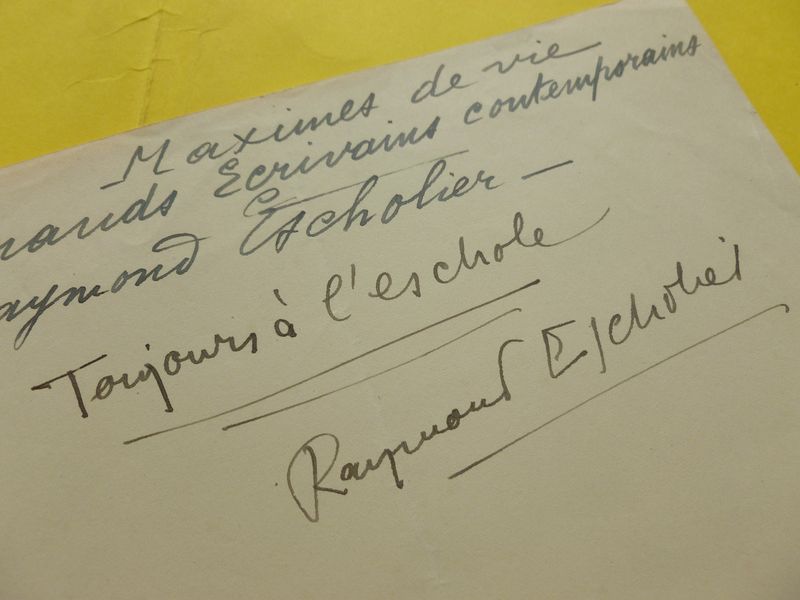 Maximes de vie
rands Ecrivains contemporains
aymond Escholier -
Toujours à l'eschole
Raymond Escholier